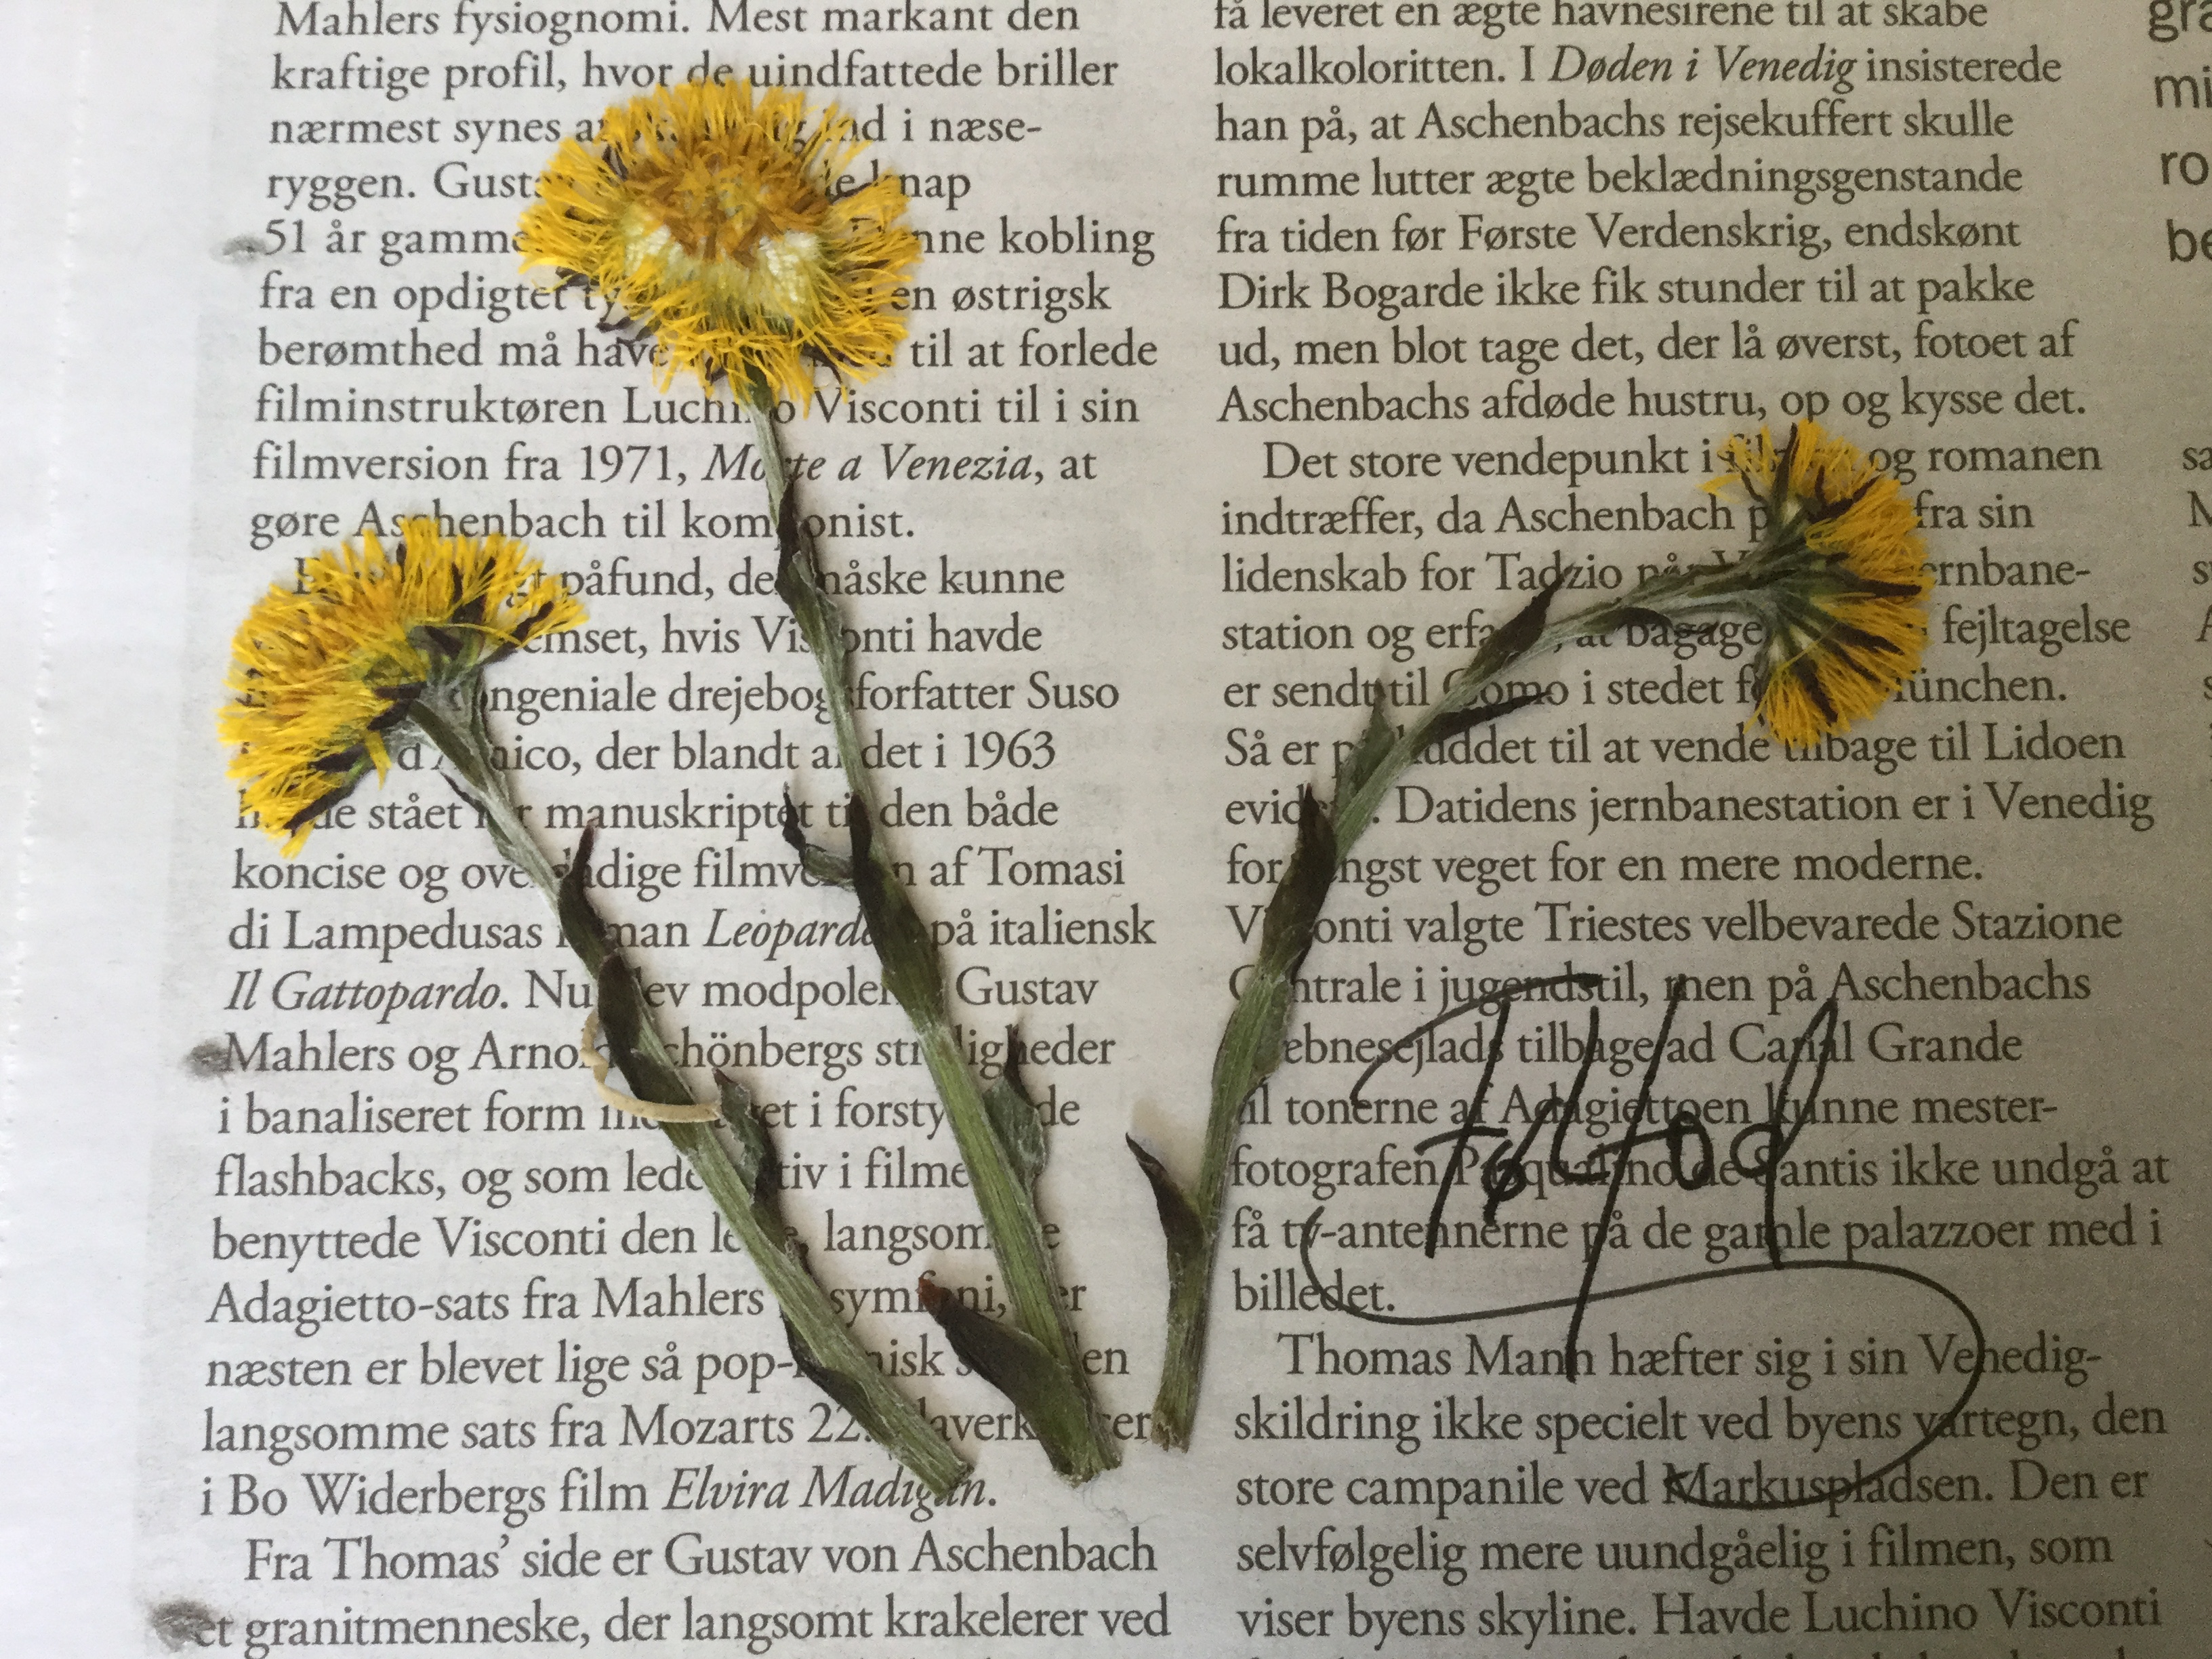 Mahlers fysiognomi. Mest markant den
kraftige profil, hvor de uindfattede briller
nærmest synes ind i næse-
ryggen. knap
51 år kobling
fra en opdigtet en østrigsk
berømthed må have til at forlede
filminstruktøren Luchino Visconti til i sin
filmversion fra 1971, Morte a Venezia, at
gøre Aschenbach til komponist.
påfund, der måske kunne
hvis Visconti havde
drejebogsforfatter Suso
der blandt andet i 1963
stået manuskriptet til den både
koncise og filmversion af Tomasi
di Lampedusas roman Leoparden, på italiensk
Il Gattopardo. Nu blev modpolerne Gustav
Mahlers og Arnold Schönbergs stridigheder
i banaliseret form i
flashbacks, og som ledemotiv i filmen
benyttede Visconti den langsomme
Adagietto-sats fra Mahlers symfoni, der
næsten er blevet lige så den
langsomme sats fra Mozarts 22.
i Bo Widerbergs film Elvira Madigan.
Fra Thomas’ side er Gustav von Aschenbach
et granitmenneske, der langsomt krakelerer ved
få leveret en ægte havnesirene til at skabe
lokalkoloritten. I Døden i Venedig insisterede
han på, at Aschenbachs rejsekuffert skulle
rumme lutter ægte beklædningsgenstande
fra tiden før Første Verdenskrig, endskønt
Dirk Bogarde ikke fik stunder til at pakke
ud, men blot tage det, der lå øverst, fotoet af
Aschenbachs afdøde hustru, op og kysse det.
Det store vendepunkt i filmen og romanen
indtræffer, da Aschenbach på fra sin
lidenskab for Tadzio når
station og erfarer, at fejltagelse
er sendt til Como i stedet for München.
Så er påskuddet til at vende tilbage til Lidoen
evident. Datidens jernbanestation er i Venedig
forlængst veget for en mere moderne.
Visconti valgte Triestes velbevarede Stazione
Centrale i jugendstil, men på Aschenbachs
tilbage ad Canal Grande
til tonerne af Adagiettoen kunne mester-
fotografen Pasqualino de Santis ikke undgå at
få tv-antennerne på de gamle palazzoer med i
billedet.
Thomas Mann hæfter sig i sin Venedig-
skildring ikke specielt ved byens vartegn, den
store campanile ved Markuspladsen. Den er
selvfølgelig mere uundgåelig i filmen, som
viser byens skyline. Havde Luchino Visconti
Følfod